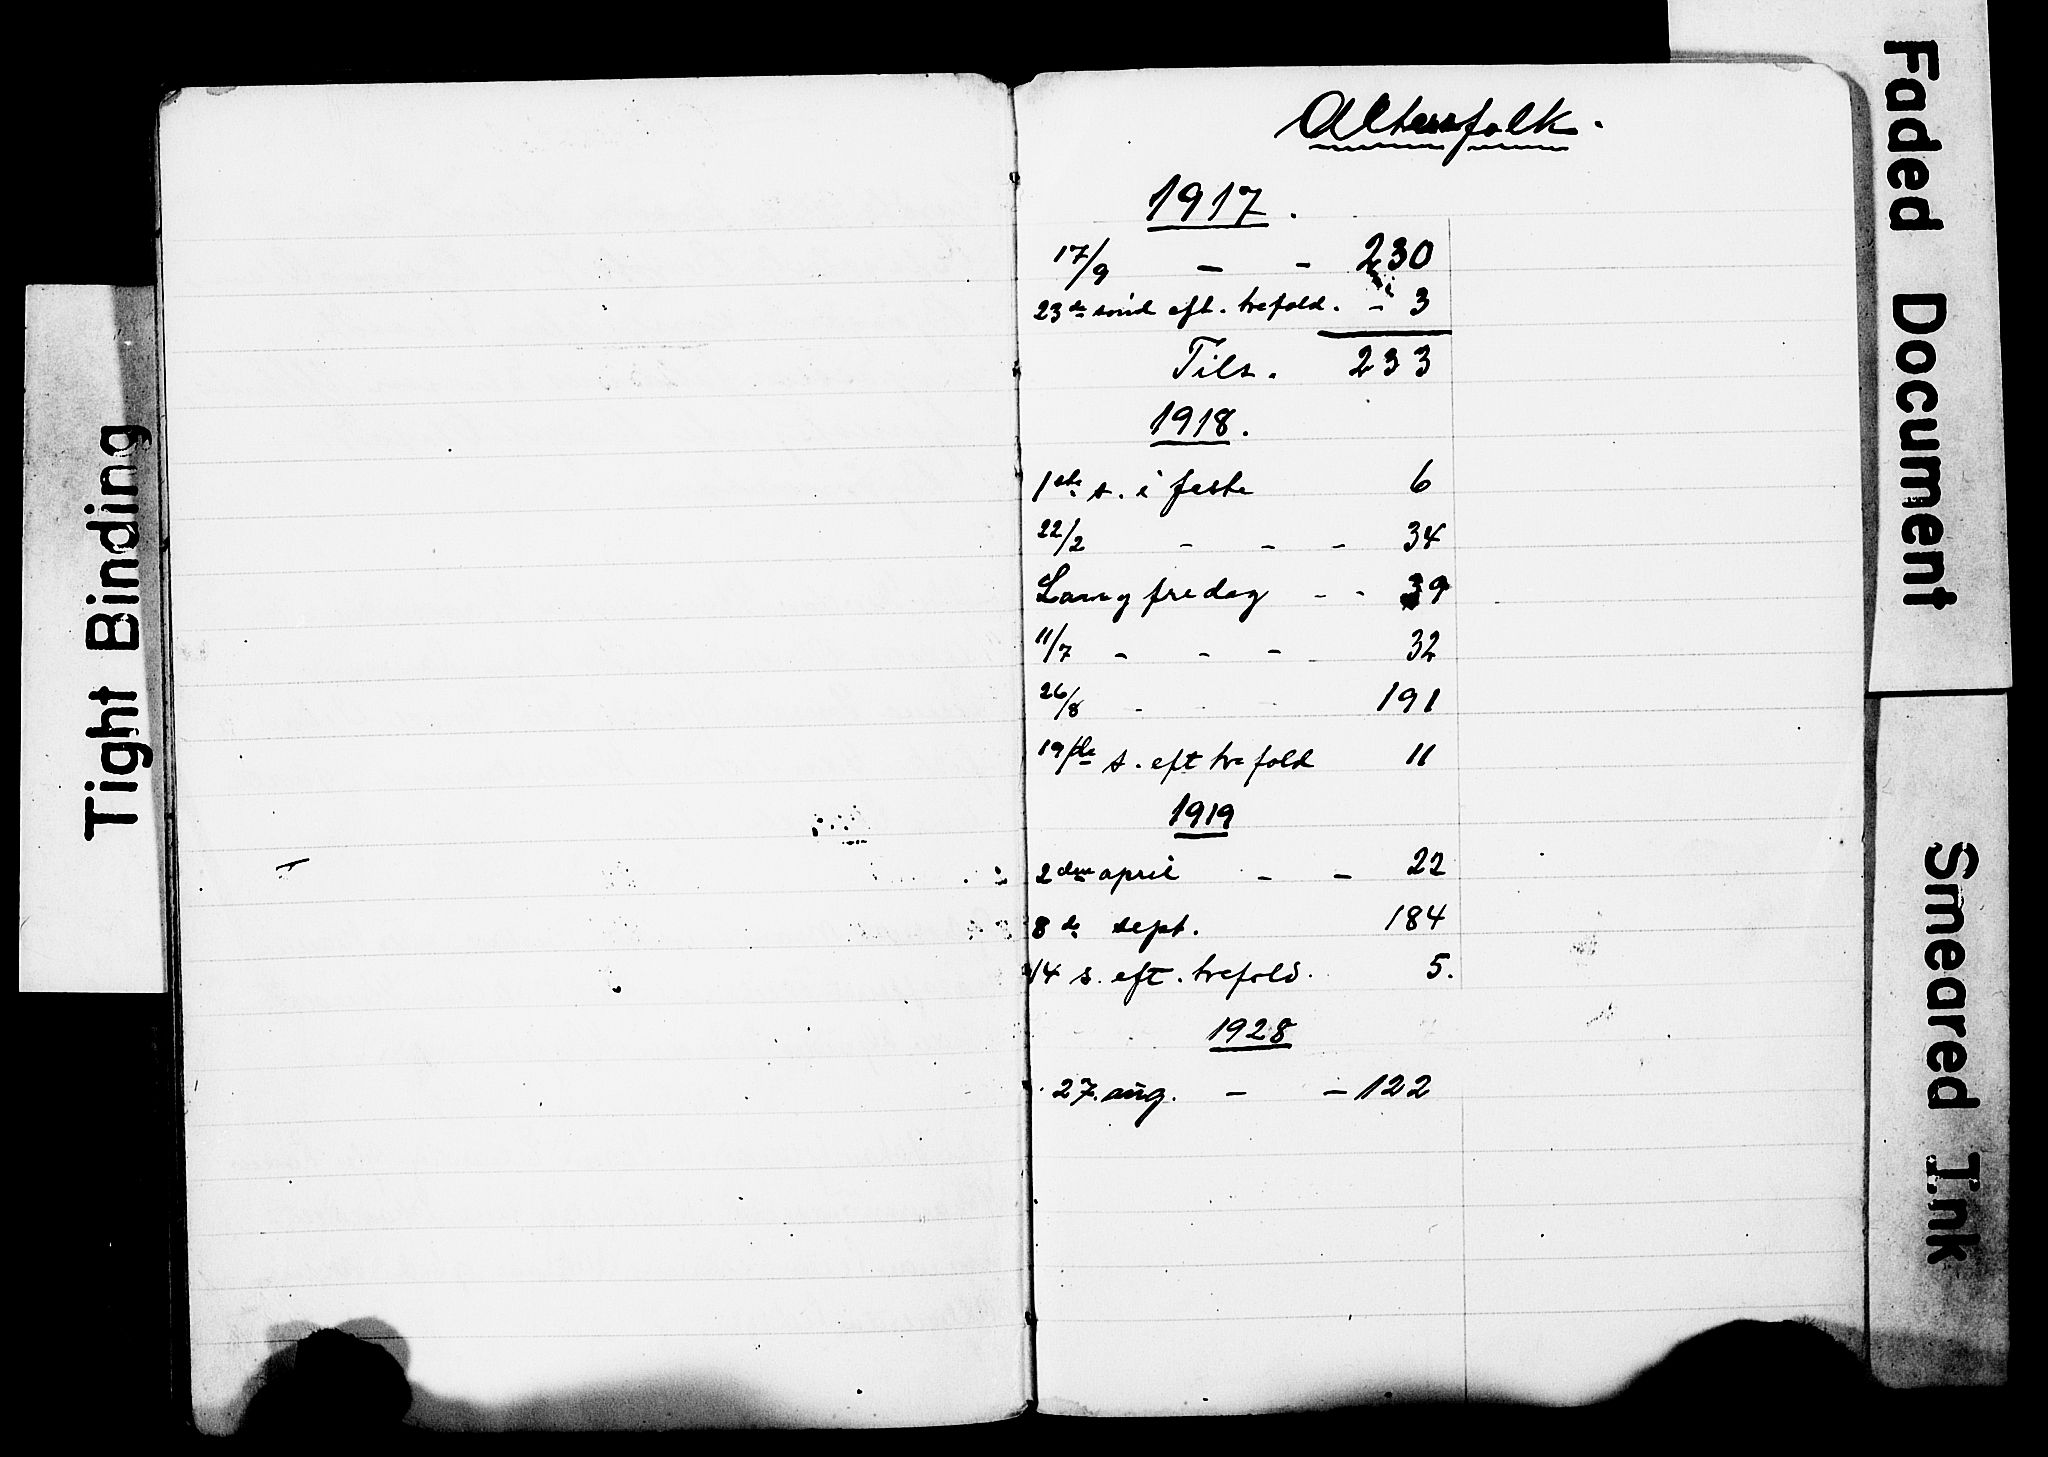 Tight Binding
Altersfolk.
1917.
17/9 - - 230
23de sönd eft. trefold. - 3
Tils. 233
1918.
1ste s. i faste 6
22/2 - - - 34
Langfredag - - 39
11/7 - - - 32
26/8 - - - 191
19de s. eft trefold 11
1919
2den april - - 22
8de sept. 184
14 s. eft. trefold. 5.
1928
27. aug. - - 122
Faded Document
Smeared Ink